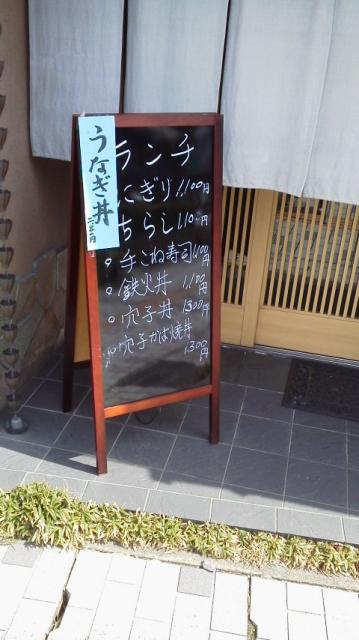 うなぎ丼
ランチ
にぎり 1,100円
ちらし 1,10
手こね寿司 1,100
鉄火丼 1,100円
穴子丼 1300円
穴子かば焼丼
1,300円